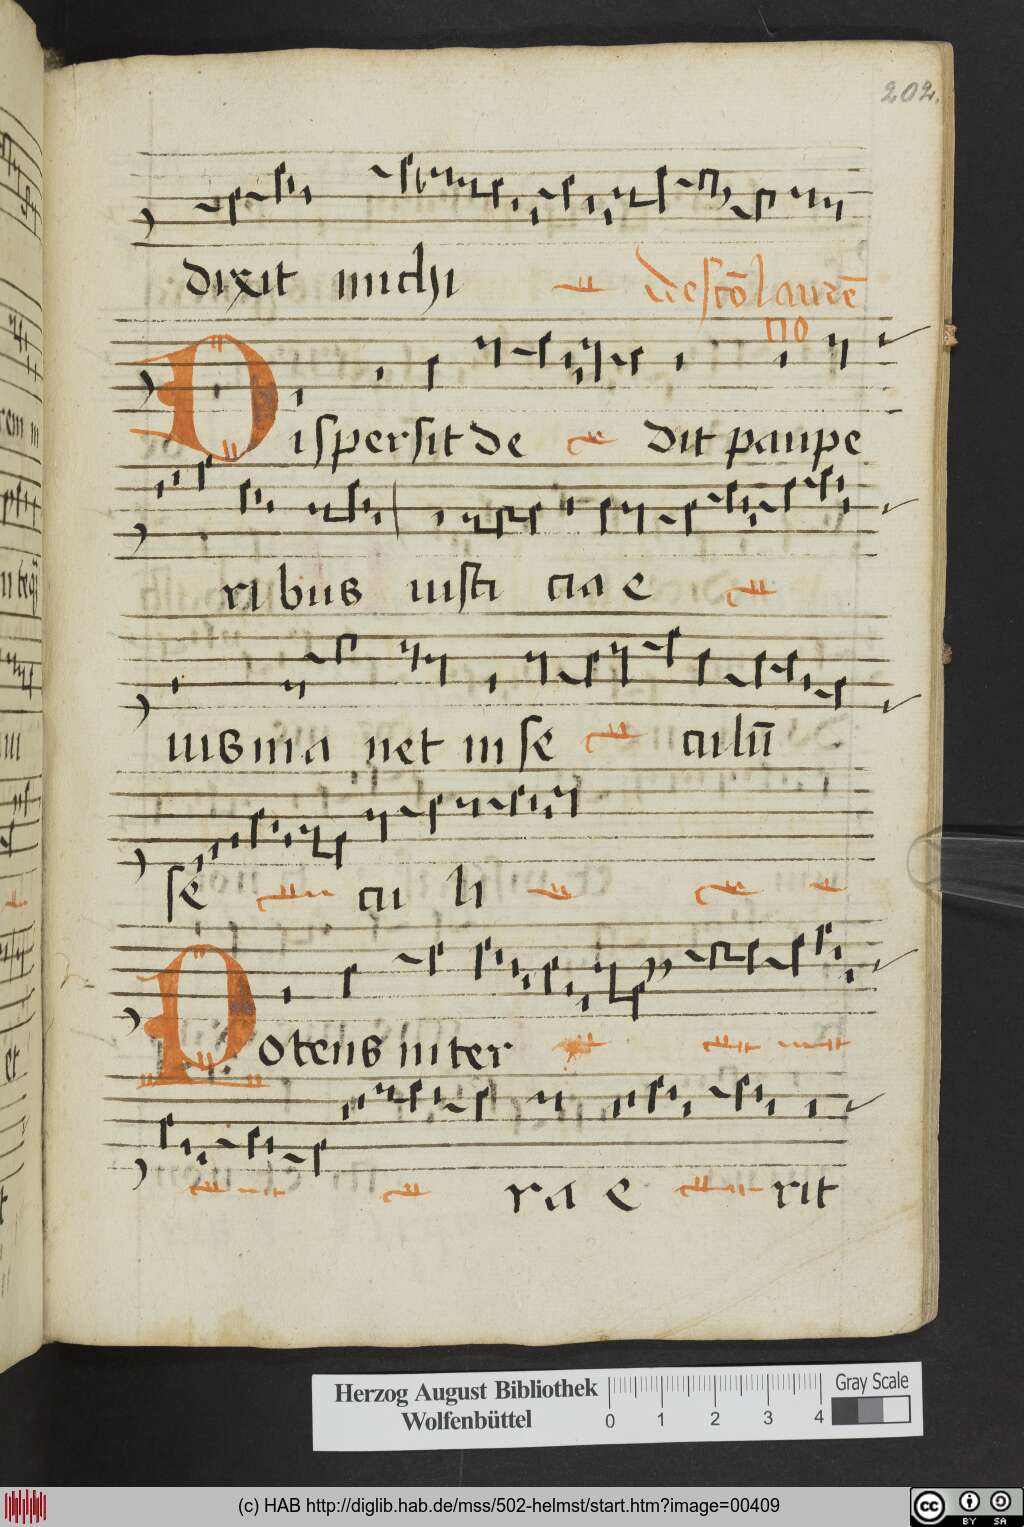 202.
dixit michi de sctō laurē
tio
Dispersit de dit paupe
ribus iusti cia e
ius ma net in se culū
se cu li
Potens in ter
ra e rit
Herzog August Bibliothek
Wolfenbüttel
0 1 2 3 4
Gray Scale
(c) HAB http://diglib.hab.de/mss/502-helmst/start.htm?image=00409
cc BY SA